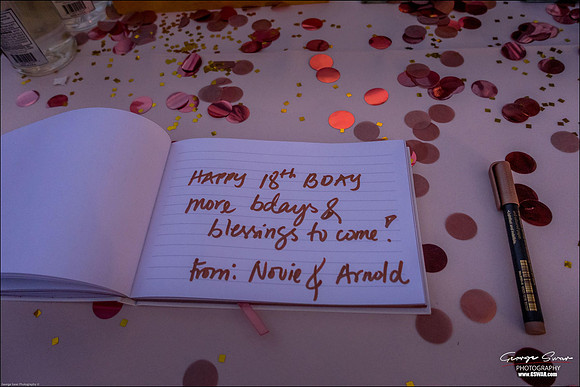 HAPPY 18th BDAY
more bdays &
blessings to come!
From: Novie & Arnold
George Swar
PHOTOGRAPHY
www.GSWAR.com